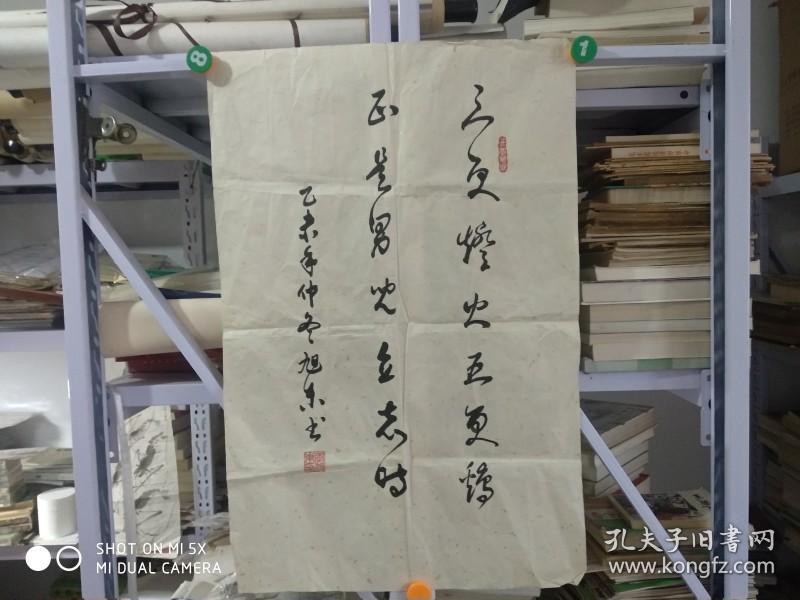 三更燈火五更鷄
正是男児立志時
乙未年仲冬旭东书
8
1
SHOT ON MI 5X
MI DUAL CAMERA
孔夫子旧书网
www.kongfz.com